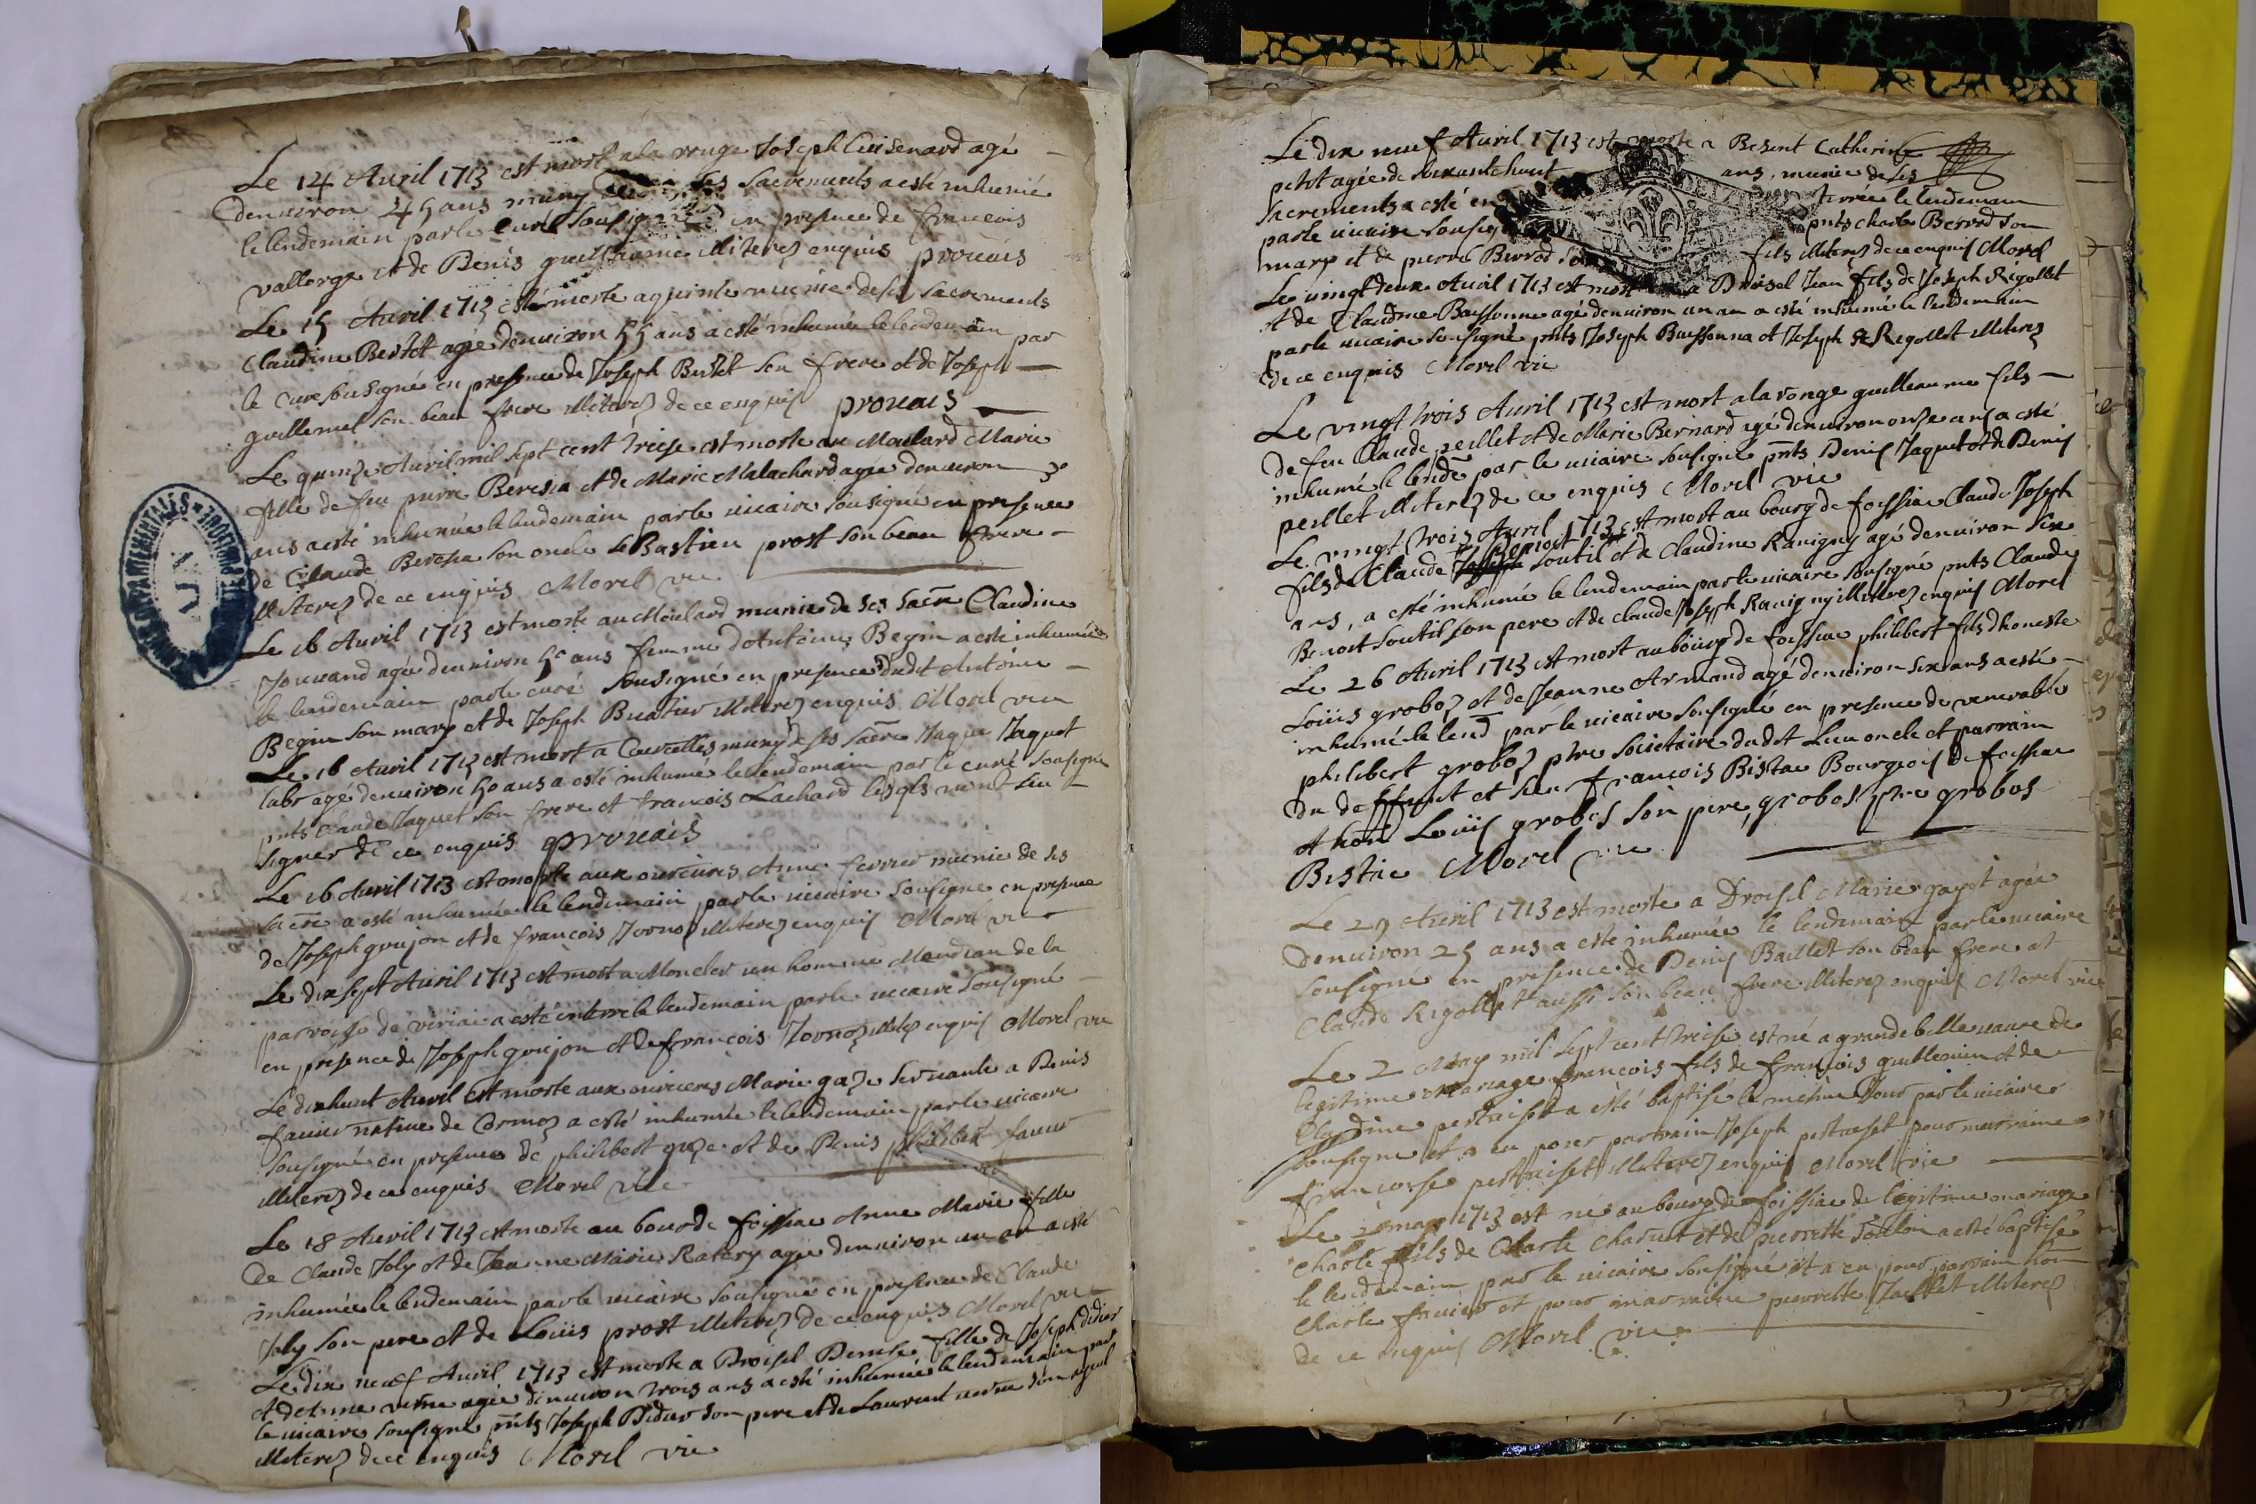 Le 14 Avril 1713 est mort a la ronge Joseph Cuisenard agé
denuiron 45 ans muny de ses sacrements a esté inhumé
le lendemain par le curé sousigné en presence de francois
vallorge et de Benis guillaume illiterez enquis prouais
Le 15 Avril 1713 est morte munie de ses sacrements
Claudine Bertet agée denuiron 55 ans a esté inhumée le lendemain par
le cure sousigné en presence de Joseph Bertet son frere et de Joseph
guillemel son beau frere illiterez de ce enquis prouais
Le quinze Auril mil sept cent treise est morte au Moulard Marie
fille de feu pierre Beresia et de Marie Malachard agée denuiron 30
ans a esté inhumée le lendemain par le uicaire sousigné en presence
de Claude Beresia son oncle SeBastien prost son beau frere
illiterez de ce enquis Morel vic
Le 16 Auril 1713 est morte au Moulard munie de ses sacre Claudine
Jouuand agée denuiron 50 ans femme d'Antoine Begin a esté inhumée
le lendemain par le curé sousigné en presence dudit Antoine
Begin son mary et de Joseph Buatier illiterez enquis Morel vic
Le 16 Auril 1713 est mort a Courcelles muny de ses sacre Jaque Jaquet
labr agé denuiron 50 ans a esté inhumé le lendemain par le curé sousigné
pnts Claude Jaquet son frere et francois Lachard lesqls n'ont sceu
signer de ce enquis prouais
Le 16 Auril 1713 est morte aux ourcieres Anne ferrier munie de ses
sacre a esté inhumée le lendemain par le uicaire sousigné en presence
de Joseph goujon et de françois illiterez enquis Morel vic
Le dix sept Auril 1713 est mort a Moncler un homme Mendian de la
paroisse de viriat a esté enterré le lendemain par le uicaire sousigné
en presence de Joseph goujon et de francois enquis Morel vic
Le dix huit Auril est morte aux ourcieres Marie gaze seruante a Denis
fauier natiue de Cormoz a esté inhumée le lendemain par le uicaire
sousigné en presence de philibert gaze et de Denis philibert fauier
illiterez de ce enquis Morel vic
Le 18 Auril 1713 est morte au bourg de foissiat Anne Marie fille
de Claude Joly et de Jeanne Marie Ratery agée denuiron un an a esté
inhumée le lendemain par le uicaire sousigné en presence de Claude
Joly son pere et de Loüis prost illiterez de ce enquis Morel vic
Le dix neuf Auril 1713 est morte a Droisel Denise fille de Joseph didier
agée denuiron trois ans a esté inhumée le lendemain par
le uicaire sousigné pnts Joseph Didier son pere et de Laurent son ayeul
illiterez de ce enquis Morel vic
Le dix neuf Auril 1713 est morte a Besent Catherine
petit agée de soixante huit ans, munie de ses
sacrements a esté enterrée le lendemain
par le uicaire sousigné pnts charle Berrod son
mary et de pierre Berrod son fils illiterez de ce enquis Morel
Le vingt deux Auril 1713 est mort a Droisel Jean fils de Joseph Rigollet
et de Claudine Buissonna agé denuiron un an a esté inhumé le lendemain
par le uicaire sousigné pnts Joseph Buissonna et Joseph Rigollet illiterez
de ce enquis Morel vic
Le vingt trois Auril 1713 est mort a la ronge guilleaume fils
de feu Claude peillet et de Marie Bernard agé denuiron onze ans a esté
inhumé le lende par le uicaire sousigné pnts Denis Jaquet et de Denis
peillet illiterez de ce enquis Morel vic
Le vingt trois Auril 1713 est mort au bourg de foissiac Claude Joseph
fils de Claude Benoit soutil et de Claudine Rauigny agé denuiron six
ans, a esté inhumé le lendemain par le uicaire sousigné pnts Claude
Benoit soutil son pere et de claude Joseph Rauigny illiterez enquis Morel
Le 26 Auril 1713 est mort au bourg de foissiac philibert fils d'honeste
Loüis groboz et de Jeanne Armand agé denuiron six ans a esté
inhumé le lend par le uicaire sousigné en presence de venerable
philibert groboz ptre societaire dudt Lieu oncle et parrain
du deffunt et sieur francois Bistac Bourgeois de foissiac
et hon Loüis grobos son pere, grobos ptre grobos
Bistac Morel vic
Le 29 Auril 1713 est morte a Droisel Marie gayot agée
denuiron 25 ans a esté inhumée le lendemain par le uicaire
sousigné en presence de Denis Baillet son beau frere et
Claude Rigollet aussi son beau frere illiterez enquis Morel vic
Le 2 May mil sept cent treise est né a grande bellevaure de
legitime mariage francois fils de françois guillermin et de
Claudine pertuiset a esté baptisé le même Jour par le uicaire
sousigné et a eu pour parrain Joseph pertuiset pour marraine
francoise pertuiset illiterez enquis Morel vic
Le 2 may 1713 est né au bourg de foissiac de legitime mariage
charle fils de Charle Charuet et de pierrette a esté baptisé
le lendemain par le uicaire sousigné et a eu pour parrain hon
charle fauier et pour marraine pierrette illiterez
de ce enquis Morel vic